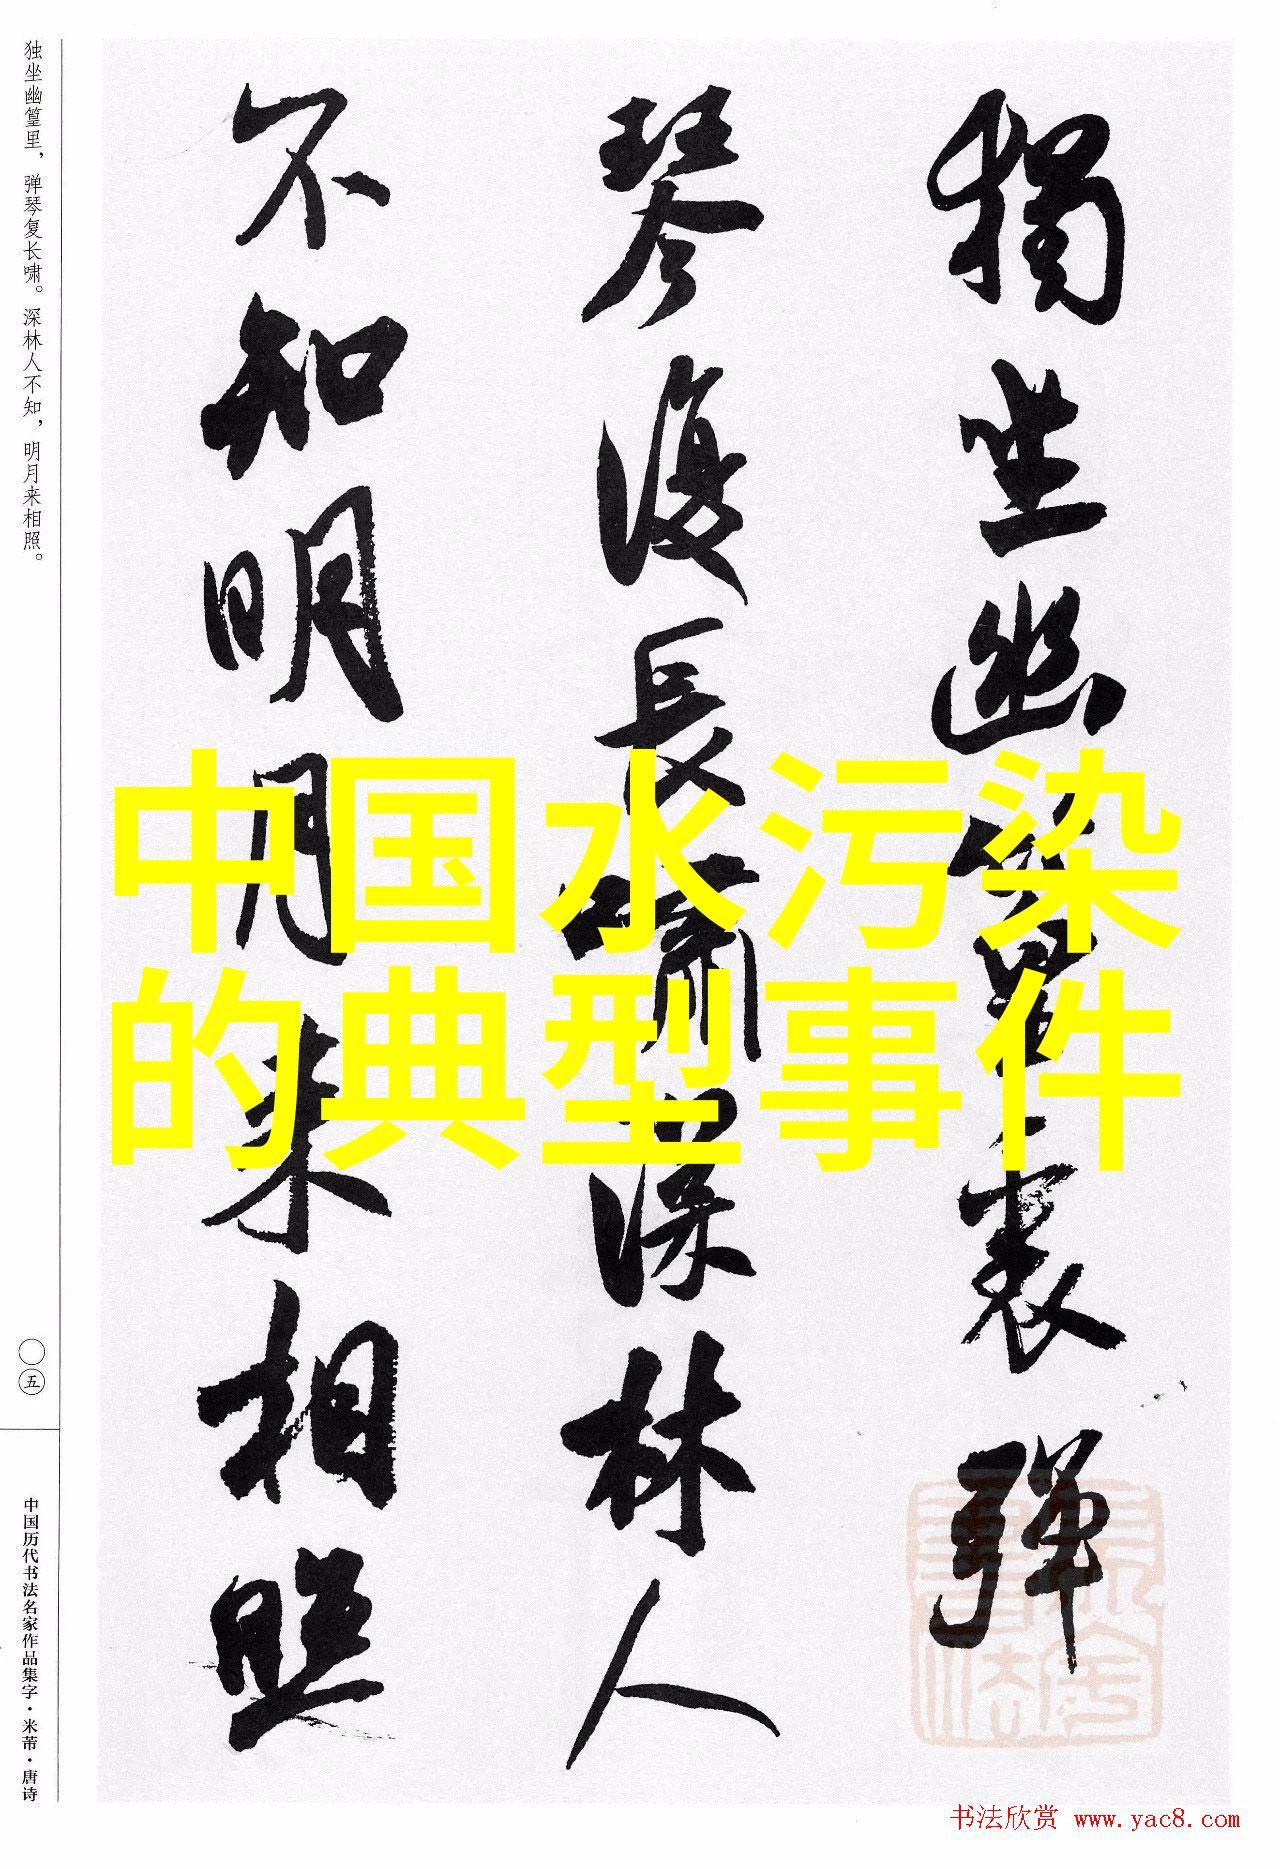 独坐幽篁里，弹琴复长啸。深林人不知，明月来相照。
獨坐幽篁裏彈
琴復長嘯深林人
不知明月来相照
中国水污染
的典型事件
〇五
中国历代书法名家作品集字·米芾·唐诗
书法欣赏 www.yac8.com